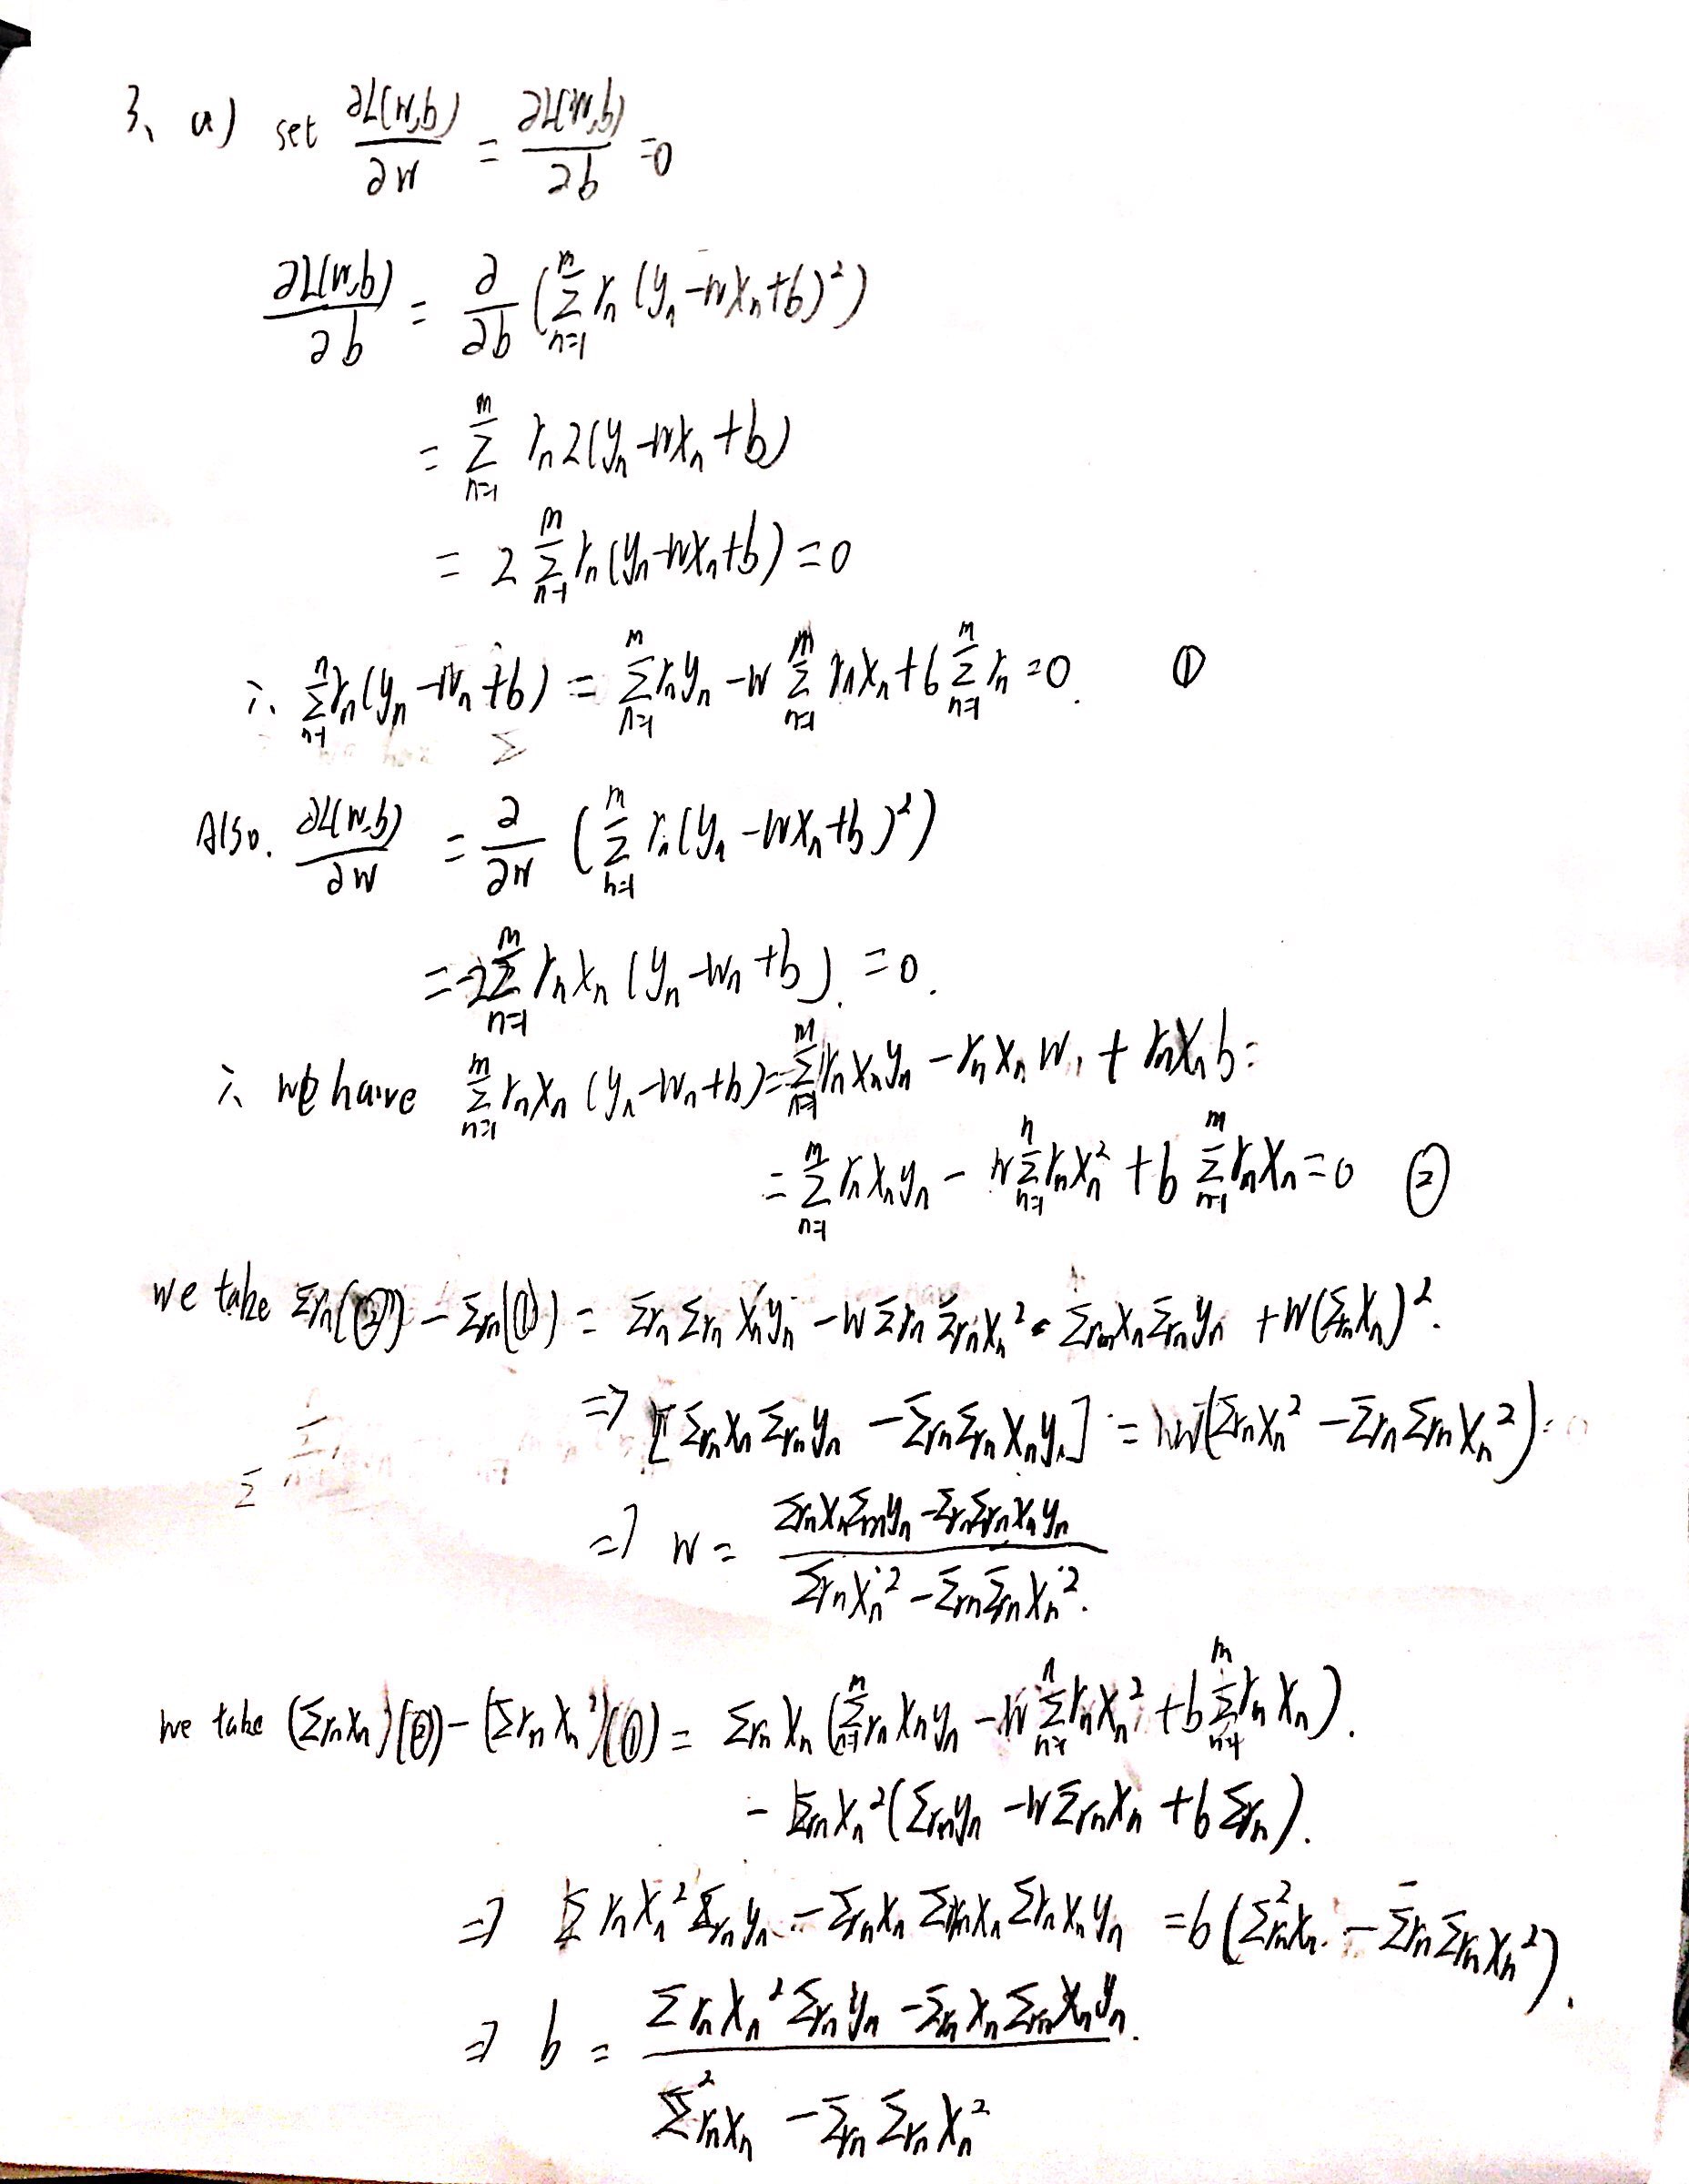 3、a) set ∂L(w,b)/∂w = ∂L(w,b)/∂b = 0
∂L(w,b)/∂b = ∂/∂b (Σ_{n=1}^{m} r_n (y_n - wx_n + b)²)
= Σ_{n=1}^{m} r_n 2(y_n - wx_n + b)
= 2 Σ_{n=1}^{m} r_n (y_n - wx_n + b) = 0
∴ Σ_{n=1}^{n} r_n (y_n - w_n + b) = Σ_{n=1}^{m} r_n y_n - w Σ_{n=1}^{m} r_n x_n + b Σ_{n=1}^{m} r_n = 0. ①
Also. ∂L(w,b)/∂w = ∂/∂w (Σ_{n=1}^{m} r_n (y_n - wx_n + b)²)
= -2 Σ_{n=1}^{m} r_n x_n (y_n - w_n + b) = 0.
∴ we have Σ_{n=1}^{m} r_n x_n (y_n - w_n + b) = Σ_{n=1}^{m} r_n x_n y_n - r_n x_n w_1 + r_n x_n b =
= Σ_{n=1}^{m} r_n x_n y_n - w Σ_{n=1}^{n} r_n x_n² + b Σ_{n=1}^{m} r_n x_n = 0 ②
we take Σr_n(②) - Σr_n(①) = Σr_n Σr_n x_n y_n - w Σr_n Σr_n x_n² - Σr_n x_n Σr_n y_n + w(Σr_n x_n)².
⇒ [Σr_n x_n Σr_n y_n - Σr_n Σr_n x_n y_n] = w(Σr_n x_n² - Σr_n Σr_n x_n²)
⇒ w = (Σr_n x_n Σr_n y_n - Σr_n Σr_n x_n y_n)/(Σr_n x_n² - Σr_n Σr_n x_n²).
we take (Σr_n x_n)(②) - (Σr_n x_n²)(①) = Σr_n x_n (Σ_{n=1}^{m} r_n x_n y_n - w Σ_{n=1}^{n} r_n x_n² + b Σ_{n=1}^{m} r_n x_n).
- Σr_n x_n² (Σr_n y_n - w Σr_n x_n + b Σr_n).
⇒ Σ r_n x_n² Σr_n y_n - Σr_n x_n Σr_n x_n Σr_n x_n y_n = b (Σ²r_n x_n - Σr_n Σr_n x_n²).
⇒ b = (Σ r_n x_n² Σr_n y_n - Σr_n x_n Σr_n x_n y_n)/(Σ² r_n x_n - Σr_n Σr_n x_n²)